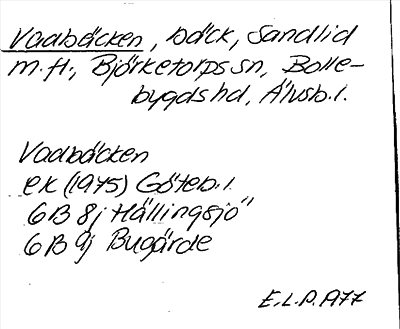 Vadbäcken, bäck, Sandlid
m.fl., Björketorps sn, Bolle-
bygds hd, Älvsb.l.
Vadbäcken
ek (1975) Göteb.l.
6B 8j Hällingsjö
6B 9j Bugärde
E.L.P. A77